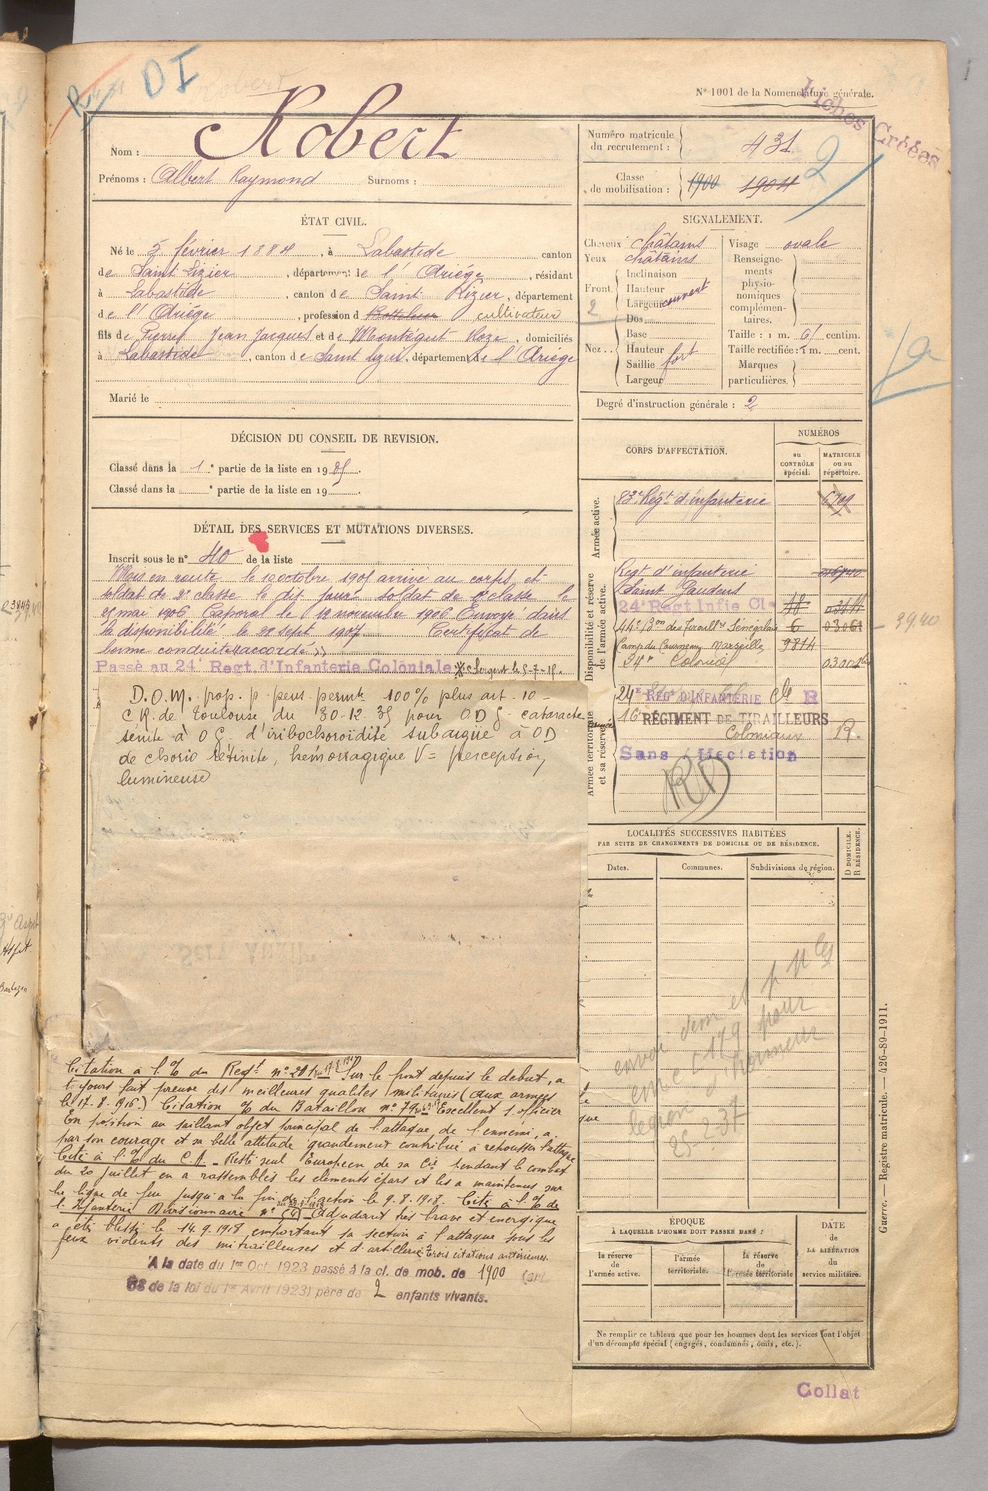 DI
Robert
Nº 1001 de la Nomenclature générale.
Fiches Créées
Nom : Robert
Prénoms : Albert Raymond Surnoms :
Numéro matricule du recrutement : 431
2
Classe de mobilisation : 1900 1904
ÉTAT CIVIL.
Né le 5 février 1884, à Labastide canton
de Saint Lizier, département de l'Ariège, résidant
à Labastide, canton de Saint Lizier, département
de l'Ariège, profession d cultivateur
fils de Pierre Jean Jacques et de Montégut Roze, domiciliés
à Labastide, canton de Saint Lizier, département de l'Ariège
Marié le
SIGNALEMENT.
Cheveux châtains
Yeux châtains
Front. Inclinaison
Hauteur
Largeur couvert
2
Dos
Nez... Base
Hauteur
Saillie fort
Largeur
Visage ovale
Renseignements physionomiques complémentaires.
Taille : 1 m. 61 centim.
Taille rectifiée : 1 m. cent.
Marques particulières.
Degré d'instruction générale : 2
DÉCISION DU CONSEIL DE REVISION.
Classé dans la 1e partie de la liste en 1905.
Classé dans la e partie de la liste en 19
DÉTAIL DES SERVICES ET MUTATIONS DIVERSES.
Inscrit sous le nº 40 de la liste
Mis en route le 10 octobre 1905 arrivé au corps et
soldat de 2e classe le dit jour soldat de 1e classe le
25 mai 1906 Caporal le 12 novembre 1906 Envoyé dans
la disponibilité le 28 sept 1907 Certificat de
bonne conduite "accordé"
Passé au 24e Regt. d'Infanterie Coloniale * Sergent le 5-7-15.
D.O.M. prop. p. pens. permte 100% plus art - 10 -
C.R. de Toulouse du 30-12-35 pour OD g- cataracte
sénile à O G. d'iribochoroïdite subaigüe à OD
de chorio rétinite, hémorragique V = perception
lumineuse
Citation à l'% du Regt nº 211 Sur le front depuis le début, a
tjours fait preuve des meilleures qualités militaires (aux armées
le 17-8-1916) Citation % du Bataillon nº 79 Excellent s.officier
En position au saillant objet principal de l'attaque de l'ennemi, a,
par son courage et sa belle attitude grandement contribué à repousser l'attaque
Cité à l'% du C.A - Resté seul Européen de sa Cie pendant le combat
du 20 juillet en a rassemblés les éléments épars et les a maintenus sur
la ligne de feu jusqu'à la fin de l'action le 9.8.1918. Cité à l'% de
l'Infanterie Divisionnaire nº Adjudant très brave et énergique
a été blessé le 14.9.1918 emportant sa section à l'attaque sous les
feux violents des mitrailleuses et d'artillerie trois citations antérieures.
A la date du 1er Oct. 1923 passé à la cl. de mob. de 1900 (art.
58 de la loi du 1er Avril 1923) père de 2 enfants vivants.
CORPS D'AFFECTATION.
NUMÉROS
au CONTRÔLE spécial.
MATRICULE ou au répertoire.
Armée active.
83e Régt d'infanterie
Disponibilité et réserve de l'armée active.
Régt d'infanterie
Saint Gaudens
24e Regt Infie Cle
Bon des Tiraillrs Sénégalais 6
Camp du Courneau Marseille 9814
24e Colonial
3940
Armée territoriale et sa réserve.
24e REGt D'INFANTERIE Cle R
16e RÉGIMENT DE TIRAILLEURS
Coloniaux R.
Sans affectation
RD
LOCALITÉS SUCCESSIVES HABITÉES
PAR SUITE DE CHANGEMENTS DE DOMICILE OU DE RÉSIDENCE.
Dates.
Communes.
Subdivisions de région.
D DOMICILE.
R RÉSIDENCE.
envoi dem et p Nles
em c 179 pour
légion d'honneur
25-2-37
ÉPOQUE
À LAQUELLE L'HOMME DOIT PASSER DANS :
la réserve de l'armée active.
l'armée territoriale.
la réserve de l'armée territoriale
DATE de LA LIBÉRATION du service militaire.
Ne remplir ce tableau que pour les hommes dont les services font l'objet
d'un décompte spécial (engagés, condamnés, omis, etc.).
Guerre. — Registre matricule. — 426-89-1911.
Collat